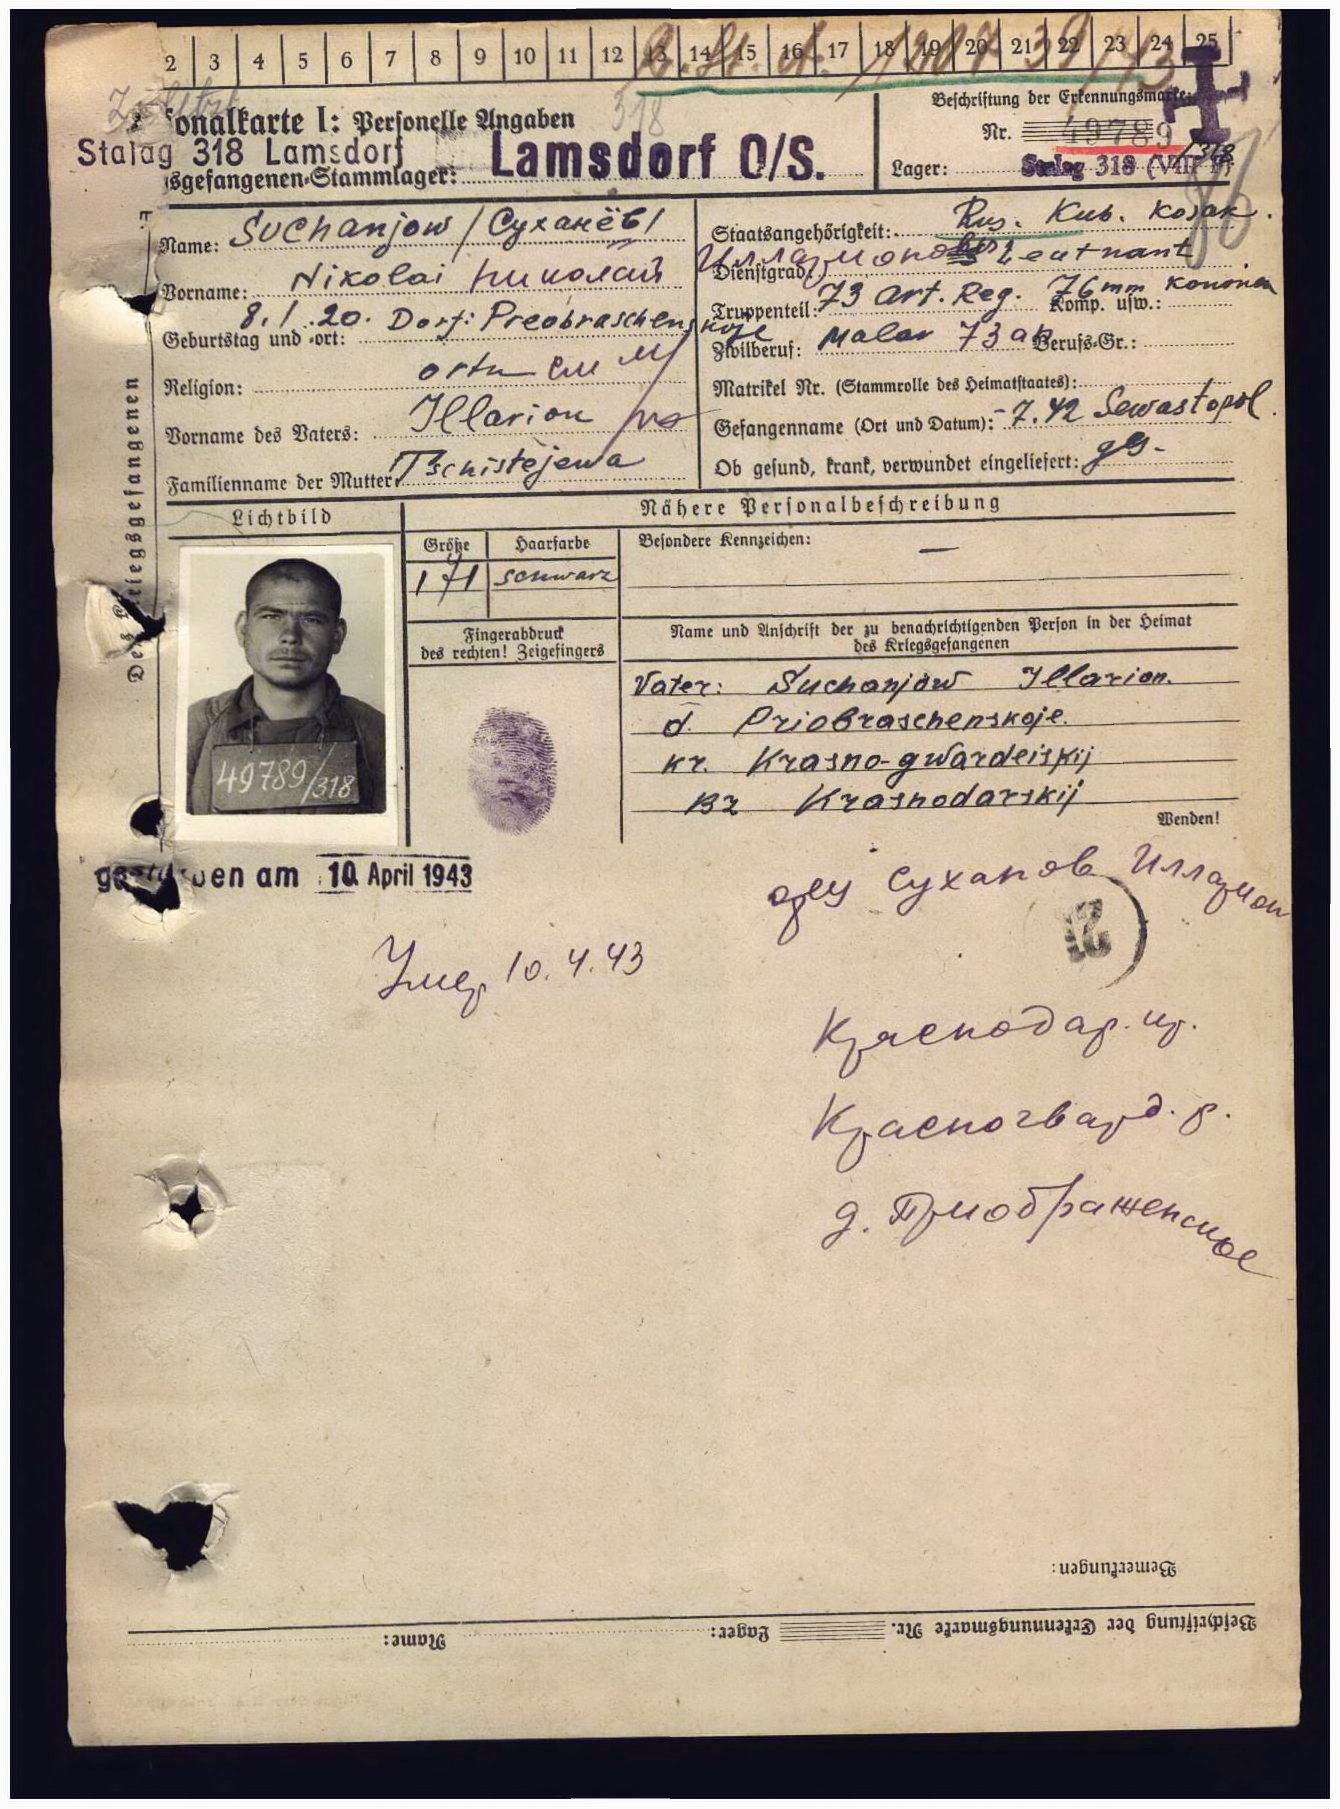 2 3 4 5 6 7 8 9 10 11 12 13 14 15 16 17 18 19 20 21 22 23 24 25
318
onalkarte I: Personelle Angaben
Beschriftung der Erkennungsmarke:
Nr. 49789
/318
Stalag 318 Lamsdorf
sgefangenen-Stammlager: Lamsdorf O/S.
Lager: Stalag 318 (VIII F)
Des Kriegsgefangenen
Name: Suchanjow / Суханёв /
Vorname: Nikolai Николай
Geburtstag und -ort: 8.1.20. Dorf: Preobraschenskoje
Religion: orth
Vorname des Vaters: Illarion
Familienname der Mutter: Tschistejewa
Staatsangehörigkeit: Rus. Kub. Kosak.
Dienstgrad: Leutnant
Truppenteil: 73 Art. Reg. Komp. usw.: 76 mm Kononen
Zivilberuf: Maler 73 ап Berufs-Gr.:
Matrikel Nr. (Stammrolle des Heimatstaates):
Gefangenname (Ort und Datum): -7.42 Sewastopol.
Ob gesund, krank, verwundet eingeliefert: ges-
Lichtbild
Nähere Personalbeschreibung
Größe Haarfarbe
171 schwarz
Besondere Kennzeichen: —
Fingerabdruck
des rechten! Zeigefingers
Name und Anschrift der zu benachrichtigenden Person in der Heimat
des Kriegsgefangenen
49789/318
Vater: Suchanjow Illarion.
d. Priobraschenskoje.
kr. Krasno-gwardeiskij
Krasnodarskij
Wenden!
gestorben am 10. April 1943
отец Суханов Илларион
12
Умер 10.4.43
Краснодар. кр.
Красногвард. р.
д. Приображенское
Bemerkungen:
Beschriftung der Erkennungsmarke Nr. Lager: Name: